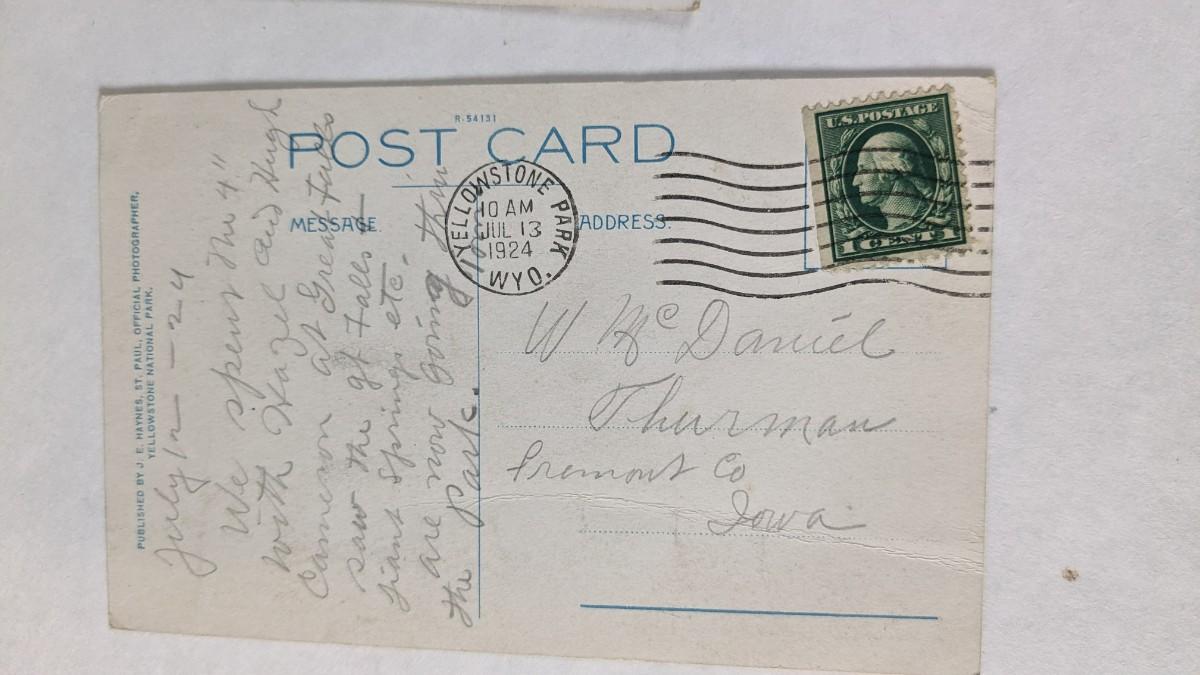 R-54131
POST CARD
MESSAGE
ADDRESS.
PUBLISHED BY J. E. HAYNES, ST. PAUL, OFFICIAL PHOTOGRAPHER,
YELLOWSTONE NATIONAL PARK.
July 12 - 24
We spent the 4"
with Hazel and Hugh
Cameron at Great Falls
saw the gt Falls &
Giant Springs etc.
are now going thru
the park.
YELLOWSTONE PARK
10 AM
JUL 13
1924
WYO.
U.S. POSTAGE
W McDaniel
Thurman
Fremont Co
Iowa